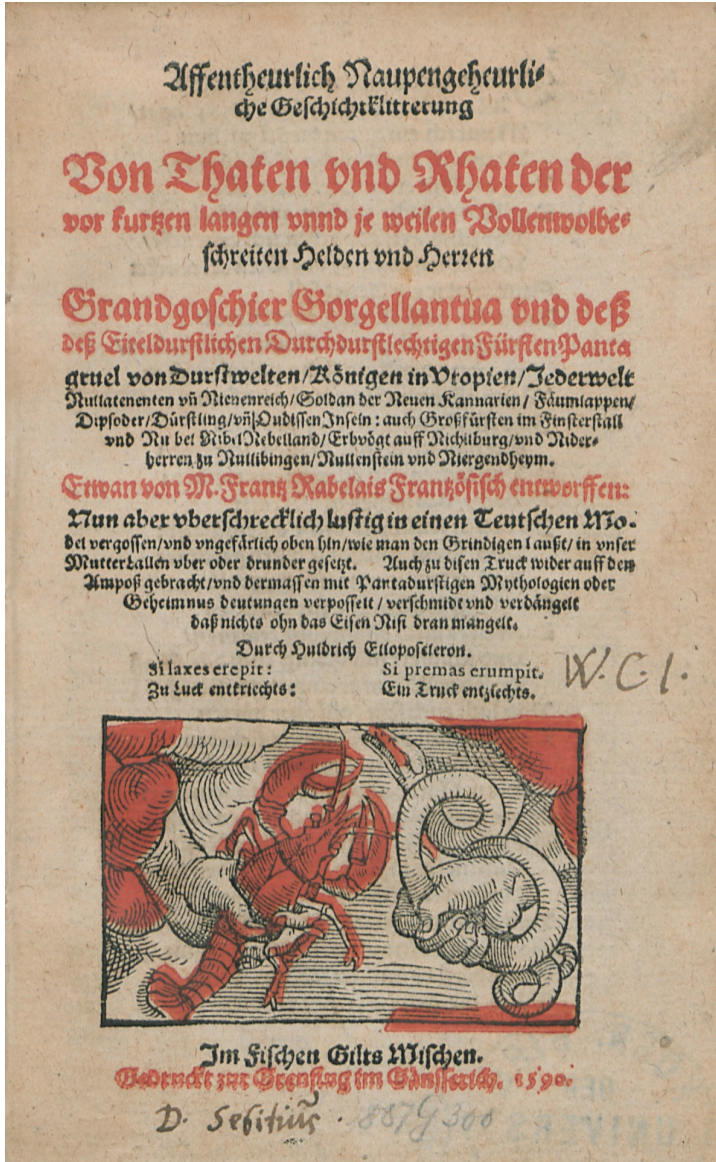 Affentheurlich Naupengeheurli⸗
che Geschichtklitterung
Von Thaten vnd Rhaten der
vor kurtzen langen vnnd je weilen Vollenwolbe⸗
schreiten Helden vnd Herren
Grandgoschier Gorgellantua vnd deß
deß Eiteldurstlichen Durchdurstlechtigen Fürsten Panta
gruel von Durstwelten/Königen in Vtopien/Jederwelt
Nullatenenten vñ Nienenreich/Soldan der Neuen Kannarien/ Fäumlappen/
Dipsoder/Dürstling/vñ Oudissen Inseln: auch Großfürsten im Finsterstall
vnd Nu bel Nibel Nebelland/Erbvögt auff Nichilburg/vnd Nider⸗
herren zu Nullibingen/Nullenstein vnd Niergendheym.
Etwan von M. Frantz Rabelais Frantzösisch entworffen:
Nun aber vberschrecklich lustig in einen Teutschen Mo⸗
del vergossen/vnd vngefärlich oben hin/wie man den Grindigen laußt/in vnser
MutterLallen vber oder drunder gesetzt. Auch zu disen Truck wider auff den
Ampoß gebracht/vnd dermassen mit Pantadurstigen Mythologien oder
Geheimnus deutungen verposselt/verschmidt vnd verdängelt
daß nichts ohn das Eisen Nisi dran mangelt.
Durch Huldrich Elloposcleron.
Si laxes erepit: Si premas erumpit.
Zu Luck entkriechts: Ein Truck entzlechts.
W. C. I.
Im Fischen Gilts Mischen.
Gedruckt zur Grenflug im Gänsserich. 1590.
D. Sebitius. 887G 300